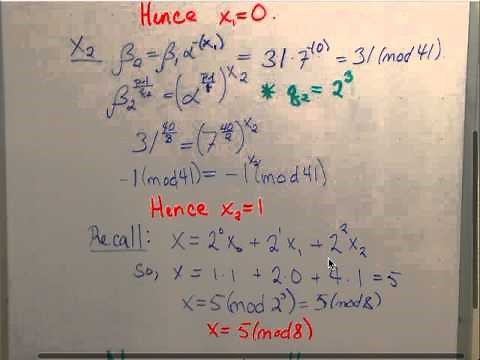 Hence x₁=0.
x₂ β₂=β₁α^-(x₁) = 31·7^-(0) = 31 (mod 41)
β₂^(p-1/q₂) = (α^(p-1/q))^x₂ * q₂ = 2³
31^(40/8) = (7^(40/2))^x₂
-1(mod 41) = -1^x₂ (mod 41)
Hence x₂=1
Recall: x = 2⁰x₀ + 2¹x₁ + 2²x₂
So, x = 1·1 + 2·0 + 4·1 = 5
x = 5 (mod 2³) = 5 (mod 8)
x = 5 (mod 8)